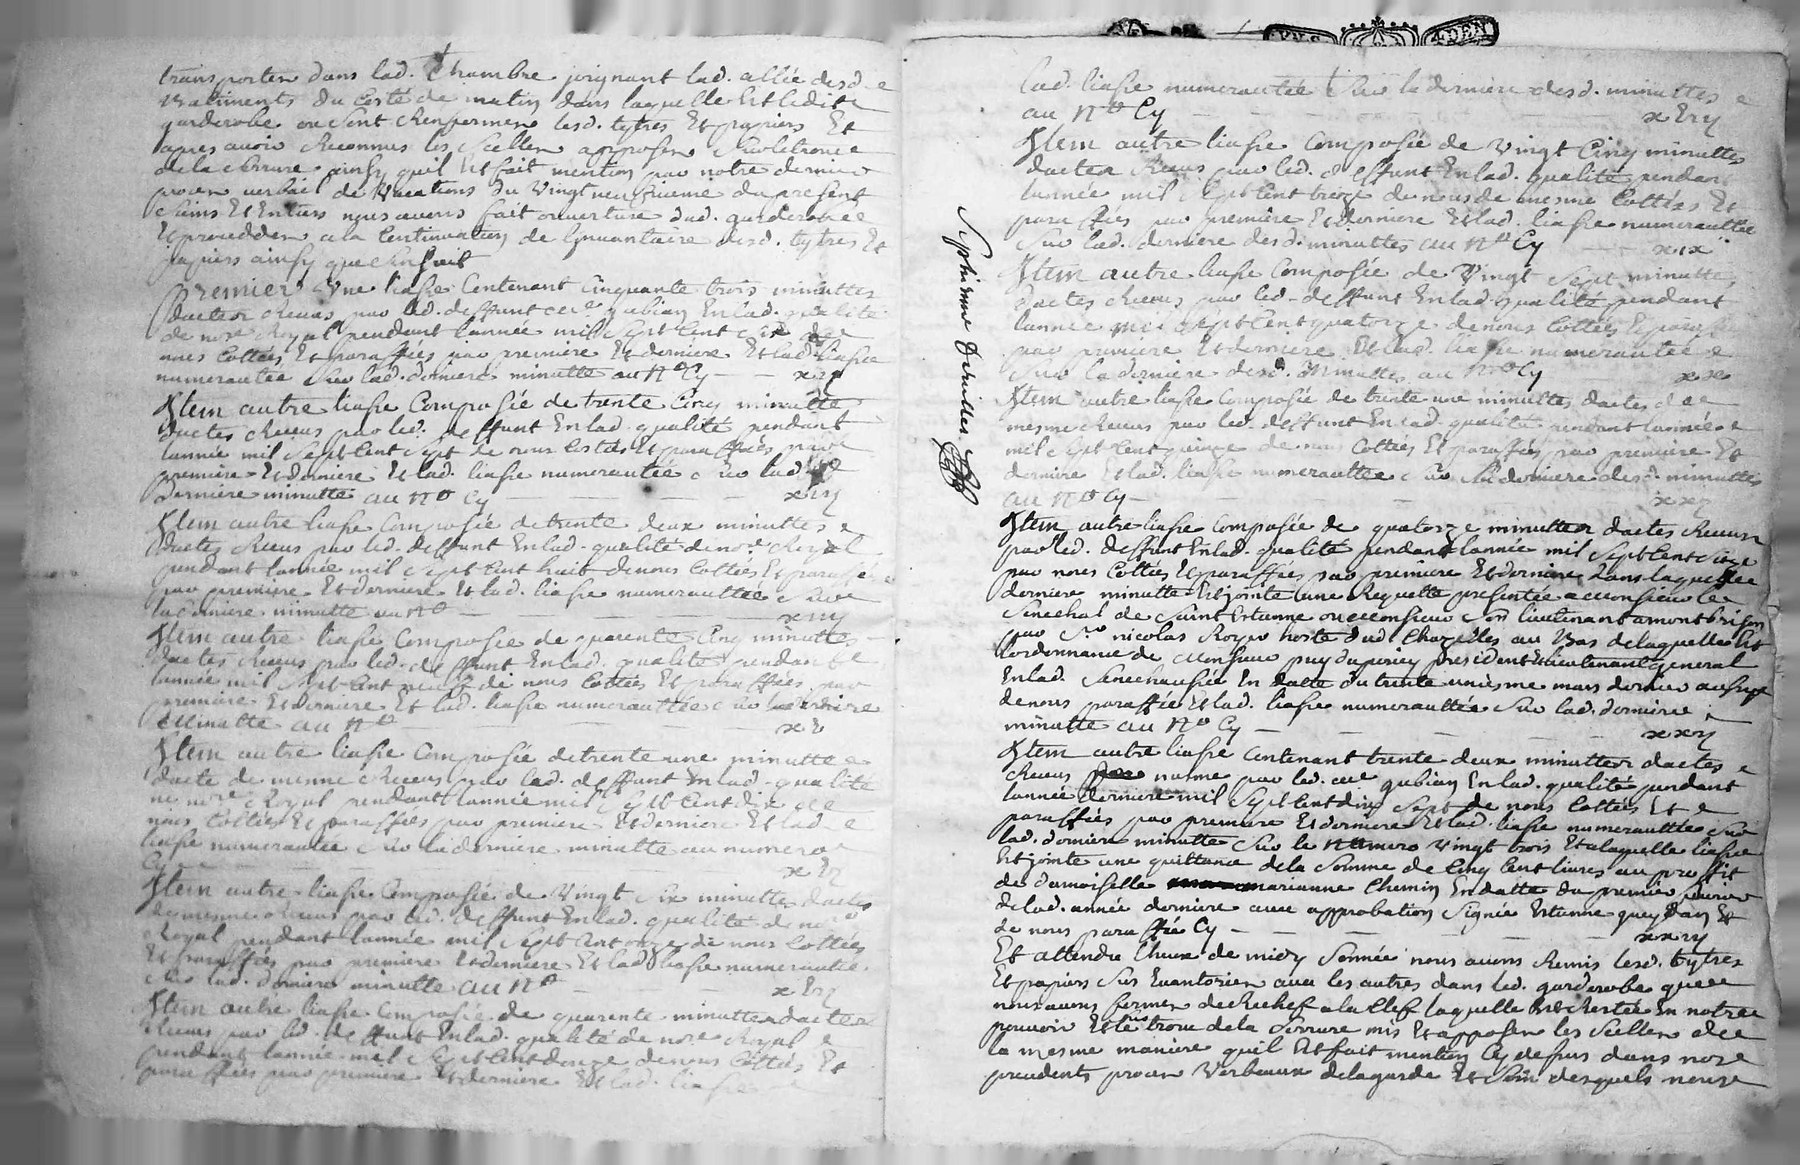 transporter dans lad. Chambre joignant lad. allée desd.
Batiments du Costé de matin dans laquelle Est ledit
garderobe ou sont Renfermer lesd. tytres Et papiers Et
apres avoir Reconnus les Scellez apposez sur le trou
de la Serrure ainsy quil Est fait mention par notre dernier
proces verbail de Vacations du Vingt neufvieme du present
Sains Et Entiers nous avons fait ouverture dud. garderobe
Et procedder a la Continuation de Lynvantaire desd. tytres Et
papiers ainsy que s'ensuit
Premier Une liasse Contenant Cinquante trois minuttes
dactes Receus par led. deffunt Me gubian En lad. qualité
de nore Royal pendant lannée mil Sept Cent six de
nous Cottées Et paraffées par premiere Et derniere Et lad. liasse
numerautée Sur lad. derniere minutte au No Cy - - x
Item autre liasse Composée de trente Cinq minutte
dactes Receus par led. deffunt En lad. qualité pendant
lannée mil Sept Cent sept de nous Cottées Et paraffées par
premiere Et derniere Et lad. liasse numerautée Sur lad.
derniere minutte au No Cy
Item autre liasse Composée de trente deux minuttes
dactes Receus par led. deffunt En lad. qualité de nore Royal
pendant lannée mil Sept Cent huit de nous Cottées Et paraffées
par premiere Et derniere Et lad. liasse numerauttée Sur
la derniere minutte au No
Item autre liasse Composée de quarente Cinq minuttes
dactes Receus par led. deffunt En lad. qualité pendant
lannée mil Sept Cent neuf de nous Cottées Et paraffées par
premiere Et derniere Et lad. liasse numerauttée Sur la derniere
Minutte au No
Item autre liasse Composée de trente une minutte
dacte de mesme Receus par led. deffunt En lad. qualité
de nore Royal pendant lannée mil Sept Cent dix de
nous Cottées Et paraffées par premiere Et derniere Et lad.
liasse numerautée Sur la derniere minutte au numero
Cy
Item autre liasse Composée de Vingt six minuttes dactes
de mesme Receus par led. deffunt En lad. qualité de nore
Royal pendant lannée mil Sept Cent onze de nous Cottées
Et paraffées par premiere Et derniere Et lad. liasse numerautée
Sur lad. derniere minutte au No
Item autre liasse Composée de quarente minuttes dactes
Receus par led. deffunt En lad. qualité de nore Royal
pendant lannée mil Sept Cent douze de nous Cottées Et
paraffées par premiere Et derniere Et lad. liasse
lad. liasse numerautée Sur la derniere desd. minuttes
au No Cy
Item autre liasse Composée de Vingt Cinq minuttes
dactes Receus par led. deffunt En lad. qualité pendant
lannée mil Sept Cent treize de nous de mesme Cottées Et
paraffées par premiere Et derniere Et lad. liasse numerauttée
Sur lad. derniere desd. minuttes au No Cy - - x ix
Item autre liasse Composée de Vingt Sept minutte
dactes Receus par led. deffunt En lad. qualité pendant
lannée mil Sept Cent quatorze de nous Cottées Et paraffées
par premiere Et derniere Et lad. liasse numerautée
Sur la derniere desd. Minuttes au No Cy - xx
Item autre liasse Composée de trente une minuttes dactes de
mesme Receus par led. deffunt En lad. qualité pendant lannée
mil Sept Cent quinze de nous Cottées Et paraffées par premiere Et
derniere Et lad. liasse numerauttée Sur la derniere desd. minuttes
au No Cy - xxj
Septieme Feuillet
Item autre liasse Composée de quatorze minuttes dactes Receus
par led. deffunt En lad. qualité pendant lannée mil Sept Cent Seize
par nous Cottées Et paraffées par premiere Et derniere dans laquelle
derniere minutte Est jointe une Requette presentée a Monsieur le
Senechal de Saint Estienne ou Monsieur Son lieutenant a montbrison
par Sr nicolas Royer hoste dud. Chazelles au Bas de laquelle Est
lordonnance de Monsieur puy du perier president Et lieutenant general
En lad. Senechaussée En datte du trente unieme mars dernier aussy
de nous paraffée Et lad. liasse numerauttée Sur lad. derniere
minutte au No Cy - - - - - xxij
Item autre liasse Contenant trente deux minuttes dactes
Receus par mesme par led. Me gubian En lad. qualité pendant
lannée derniere mil Sept Cent dix Sept de nous Cottées Et
paraffées par premiere Et derniere Et lad. liasse numerauttée Sur
lad. derniere minutte Sur le Numero Vingt trois Et a laquelle liasse
Est jointe une quittance de la Somme de Cinq Cent livres au proffit
de damoiselle marianne Chemin En datte du premier fevrier
de lad. année derniere avec approbation Signée Estienne Et
de nous paraffée Cy - - - - - xxiij
Et attendre Lheure de midy Sonnée nous avons Remis lesd. tytres
Et papiers Sus Invantoriez avec les autres dans led. garderobe que
nous avons fermer de Rechef a la Clef laquelle Est Restée En notre
pouvoir Et le trou de la Serrure mis Et apposer les Scellez de
la mesme maniere quil Est fait mention Cy dessus dans nore
precedents proces Verbeaux de la garde Et Soin desquels nore